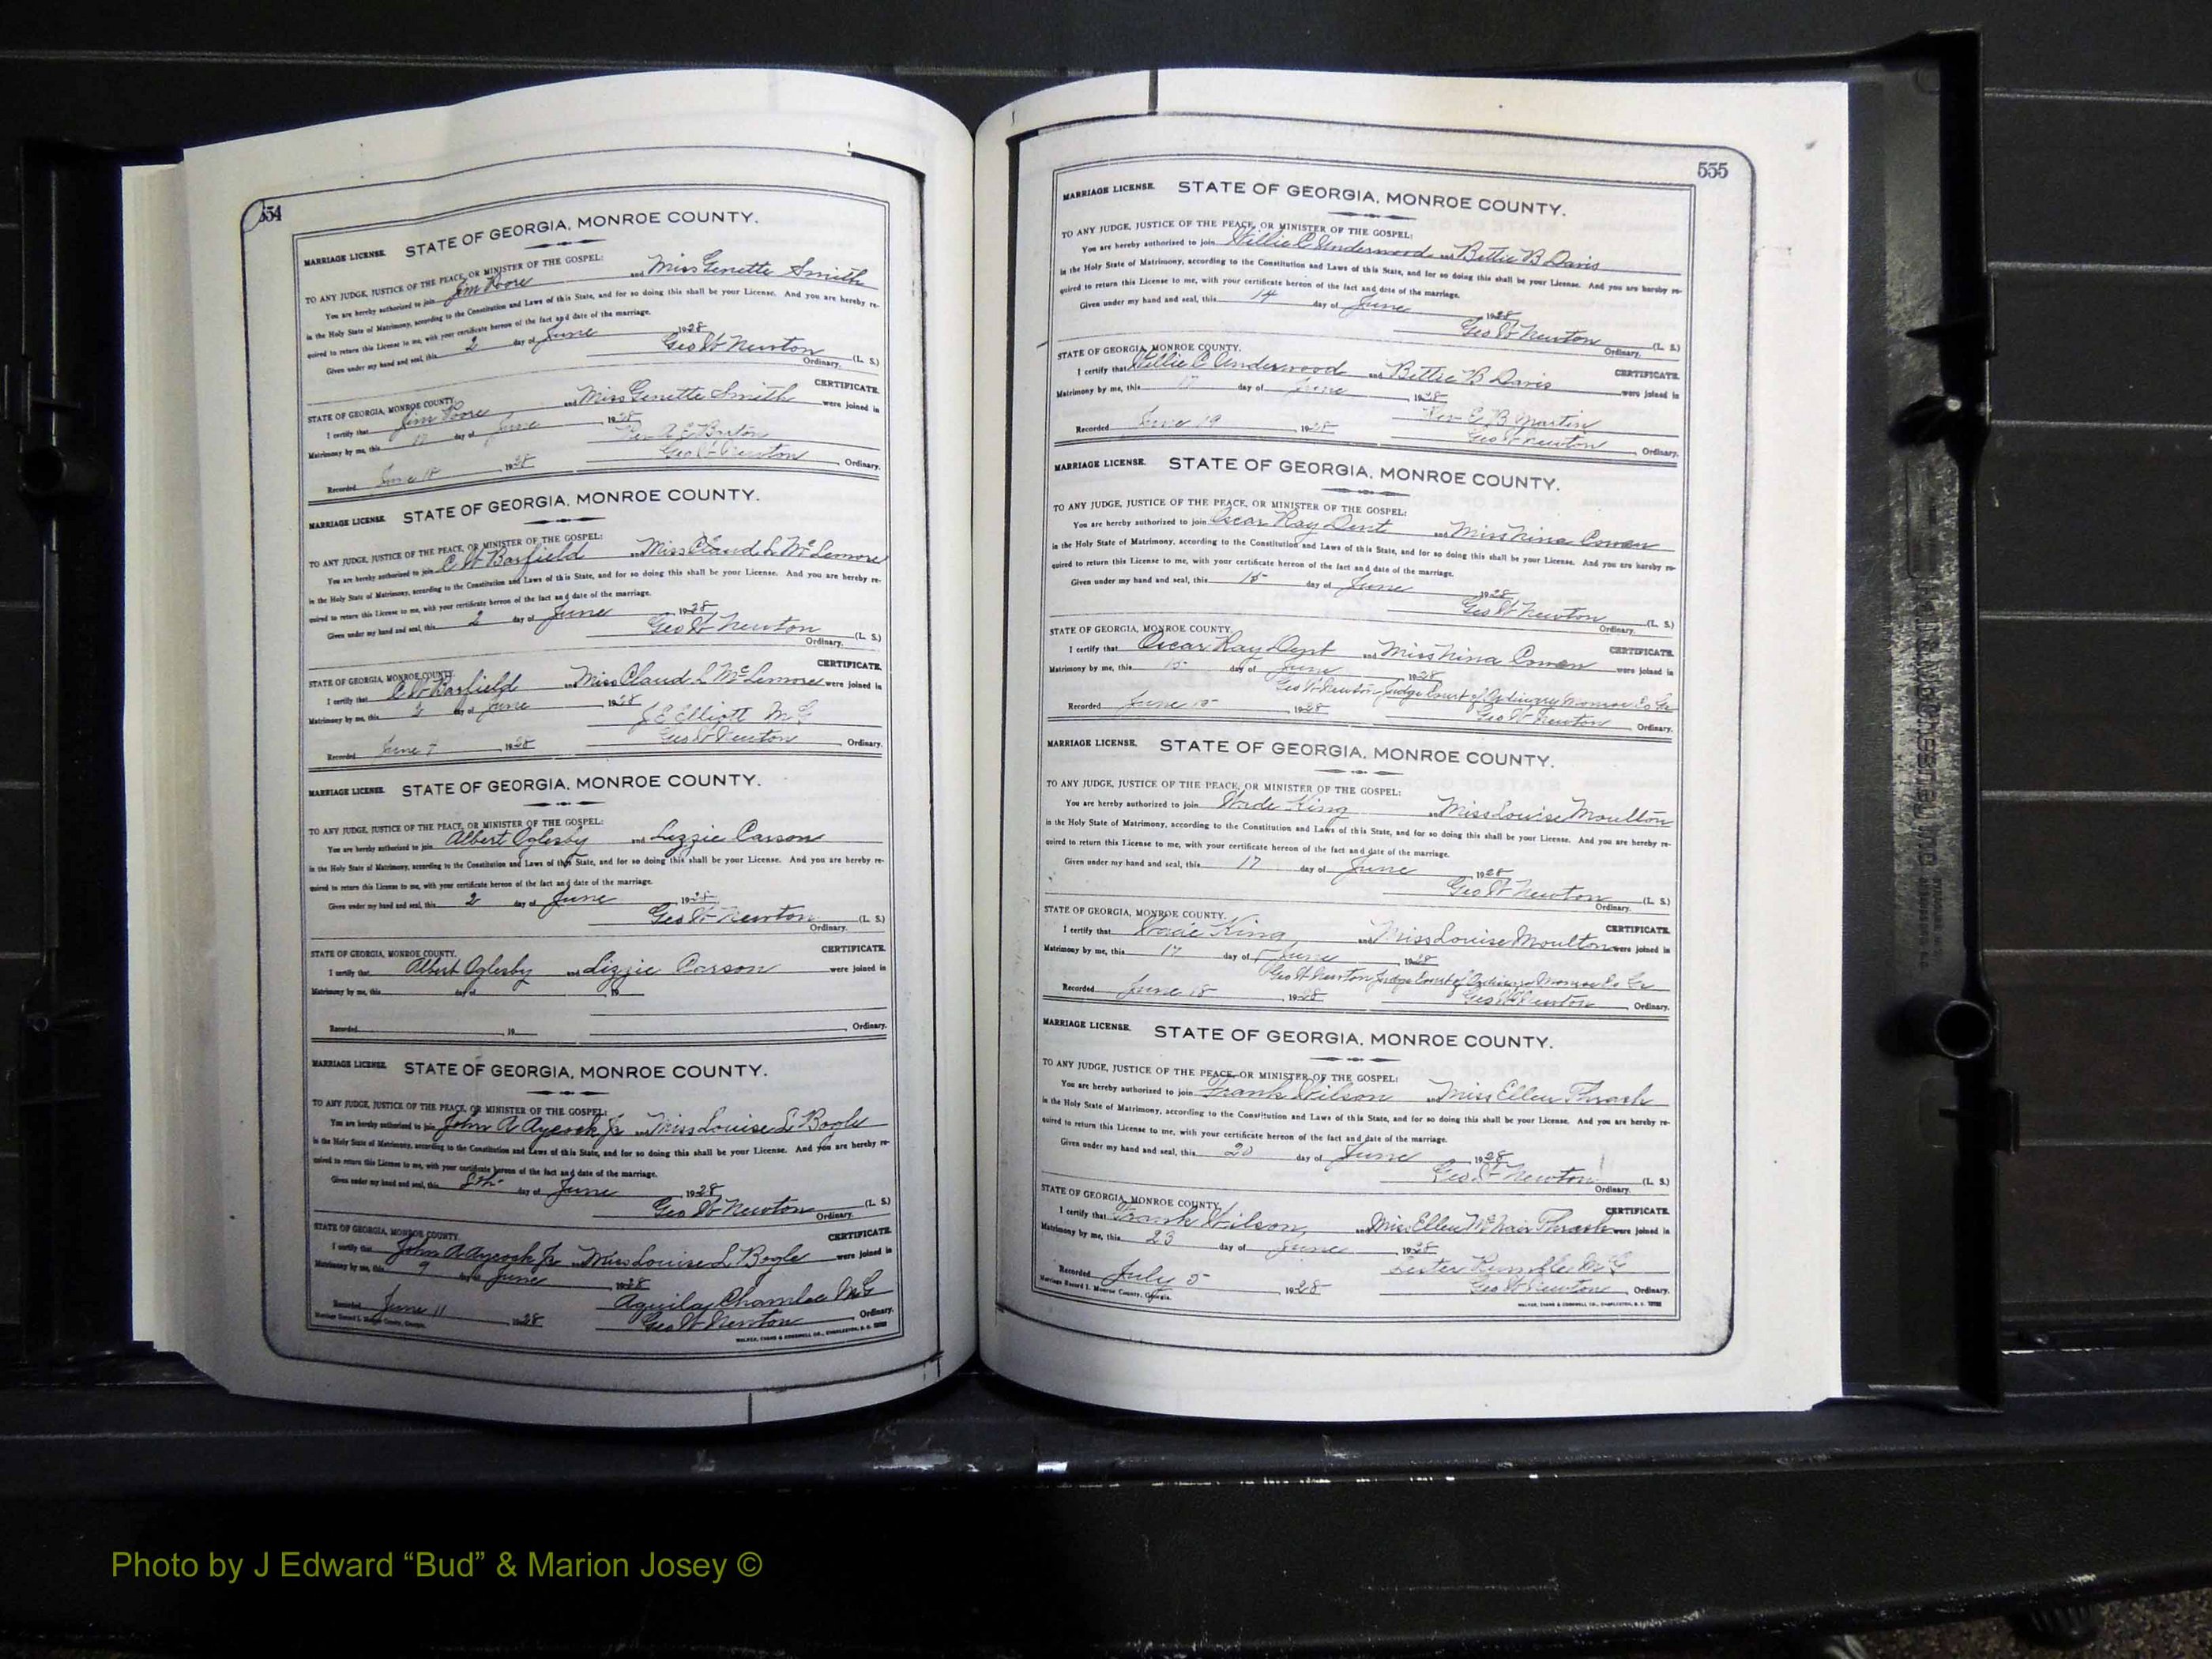 554
MARRIAGE LICENSE. STATE OF GEORGIA, MONROE COUNTY.
TO ANY JUDGE, JUSTICE OF THE PEACE, OR MINISTER OF THE GOSPEL:
You are hereby authorized to join Jim Poore and Miss Genette Smith
in the Holy State of Matrimony, according to the Constitution and Laws of this State, and for so doing this shall be your License. And you are hereby re-
quired to return this License to me, with your certificate hereon of the fact and date of the marriage.
Given under my hand and seal, this 2 day of June 1928
Geo W Newton (L. S.)
Ordinary.
CERTIFICATE.
STATE OF GEORGIA, MONROE COUNTY.
I certify that Jim Poore and Miss Genette Smith were joined in
Matrimony by me, this day of June, 1928
Rev A E Burton
Recorded June 18 1928 Geo W Newton, Ordinary.
MARRIAGE LICENSE. STATE OF GEORGIA, MONROE COUNTY.
TO ANY JUDGE, JUSTICE OF THE PEACE, OR MINISTER OF THE GOSPEL:
You are hereby authorized to join C W Barfield and Miss Claud L McLemore
in the Holy State of Matrimony, according to the Constitution and Laws of this State, and for so doing this shall be your License. And you are hereby re-
quired to return this License to me, with your certificate hereon of the fact and date of the marriage.
Given under my hand and seal, this 2 day of June, 1928
Geo W Newton (L. S.)
Ordinary.
CERTIFICATE.
STATE OF GEORGIA, MONROE COUNTY.
I certify that C W Barfield and Miss Claud L McLemore were joined in
Matrimony by me, this 2 day of June, 1928
J E Elliott M G
Recorded June 7, 1928 Geo W Newton, Ordinary.
MARRIAGE LICENSE. STATE OF GEORGIA, MONROE COUNTY.
TO ANY JUDGE, JUSTICE OF THE PEACE, OR MINISTER OF THE GOSPEL:
You are hereby authorized to join Albert Oglesby and Lizzie Carson
in the Holy State of Matrimony, according to the Constitution and Laws of this State, and for so doing this shall be your License. And you are hereby re-
quired to return this License to me, with your certificate hereon of the fact and date of the marriage.
Given under my hand and seal, this 2 day of June, 1928
Geo W Newton (L. S.)
Ordinary.
CERTIFICATE.
STATE OF GEORGIA, MONROE COUNTY.
I certify that Albert Oglesby and Lizzie Carson were joined in
Matrimony by me, this day of, 19
Recorded, 19 Ordinary.
MARRIAGE LICENSE. STATE OF GEORGIA, MONROE COUNTY.
TO ANY JUDGE, JUSTICE OF THE PEACE, OR MINISTER OF THE GOSPEL:
You are hereby authorized to join John A Aycock Jr and Miss Louise L Bogle
in the Holy State of Matrimony, according to the Constitution and Laws of this State, and for so doing this shall be your License. And you are hereby re-
quired to return this License to me, with your certificate hereon of the fact and date of the marriage.
Given under my hand and seal, this 8th day of June, 1928
Geo W Newton (L. S.)
Ordinary.
CERTIFICATE.
STATE OF GEORGIA, MONROE COUNTY.
I certify that John A Aycock Jr and Miss Louise L Bogle were joined in
Matrimony by me, this 9 day of June, 1928
Aquila Chamlee M G
Recorded June 11, 1928 Geo W Newton Ordinary.
Marriage Record I. Monroe County, Georgia. WALKER, EVANS & COGSWELL CO., CHARLESTON, S. C.
555
MARRIAGE LICENSE. STATE OF GEORGIA, MONROE COUNTY.
TO ANY JUDGE, JUSTICE OF THE PEACE, OR MINISTER OF THE GOSPEL:
You are hereby authorized to join Willie C Underwood and Bettie B Davis
in the Holy State of Matrimony, according to the Constitution and Laws of this State, and for so doing this shall be your License. And you are hereby re-
quired to return this License to me, with your certificate hereon of the fact and date of the marriage.
Given under my hand and seal, this 14 day of June, 1928
Geo W Newton (L. S.)
Ordinary.
STATE OF GEORGIA, MONROE COUNTY. CERTIFICATE.
I certify that Willie C Underwood and Bettie B Davis were joined in
Matrimony by me, this 17 day of June, 1928
Rev E B Martin
Recorded June 19, 1928 Geo W Newton, Ordinary.
MARRIAGE LICENSE. STATE OF GEORGIA, MONROE COUNTY.
TO ANY JUDGE, JUSTICE OF THE PEACE, OR MINISTER OF THE GOSPEL:
You are hereby authorized to join Oscar Ray Dent and Miss Nina Cowan
in the Holy State of Matrimony, according to the Constitution and Laws of this State, and for so doing this shall be your License. And you are hereby re-
quired to return this License to me, with your certificate hereon of the fact and date of the marriage.
Given under my hand and seal, this 15 day of June, 1928
Geo W Newton (L. S.)
Ordinary.
STATE OF GEORGIA, MONROE COUNTY. CERTIFICATE.
I certify that Oscar Ray Dent and Miss Nina Cowan were joined in
Matrimony by me, this 15 day of June, 1928
Geo W Newton Judge Court of Ordinary Monroe Co Ga
Recorded June 15, 1928 Geo W Newton, Ordinary.
MARRIAGE LICENSE. STATE OF GEORGIA, MONROE COUNTY.
TO ANY JUDGE, JUSTICE OF THE PEACE, OR MINISTER OF THE GOSPEL:
You are hereby authorized to join Wade King and Miss Louise Moulton
in the Holy State of Matrimony, according to the Constitution and Laws of this State, and for so doing this shall be your License. And you are hereby re-
quired to return this License to me, with your certificate hereon of the fact and date of the marriage.
Given under my hand and seal, this 17 day of June, 1928
Geo W Newton (L. S.)
Ordinary.
STATE OF GEORGIA, MONROE COUNTY. CERTIFICATE.
I certify that Wade King and Miss Louise Moulton were joined in
Matrimony by me, this 17 day of June, 1928
Geo W Newton Judge Court of Ordinary Monroe Co Ga
Recorded June 18, 1928 Geo W Newton, Ordinary.
MARRIAGE LICENSE. STATE OF GEORGIA, MONROE COUNTY.
TO ANY JUDGE, JUSTICE OF THE PEACE, OR MINISTER OF THE GOSPEL:
You are hereby authorized to join Frank Wilson and Miss Ellen Thrash
in the Holy State of Matrimony, according to the Constitution and Laws of this State, and for so doing this shall be your License. And you are hereby re-
quired to return this License to me, with your certificate hereon of the fact and date of the marriage.
Given under my hand and seal, this 20 day of June, 1928
Geo W Newton (L. S.)
Ordinary.
STATE OF GEORGIA, MONROE COUNTY. CERTIFICATE.
I certify that Frank Wilson and Miss Ellen McNair Thrash were joined in
Matrimony by me, this 23 day of June, 1928
Lester Rumble M G
Recorded July 5, 1928 Geo W Newton, Ordinary.
Marriage Record I. Monroe County, Georgia. WALKER, EVANS & COGSWELL CO., CHARLESTON, S. C.
Photo by J Edward “Bud” & Marion Josey ©